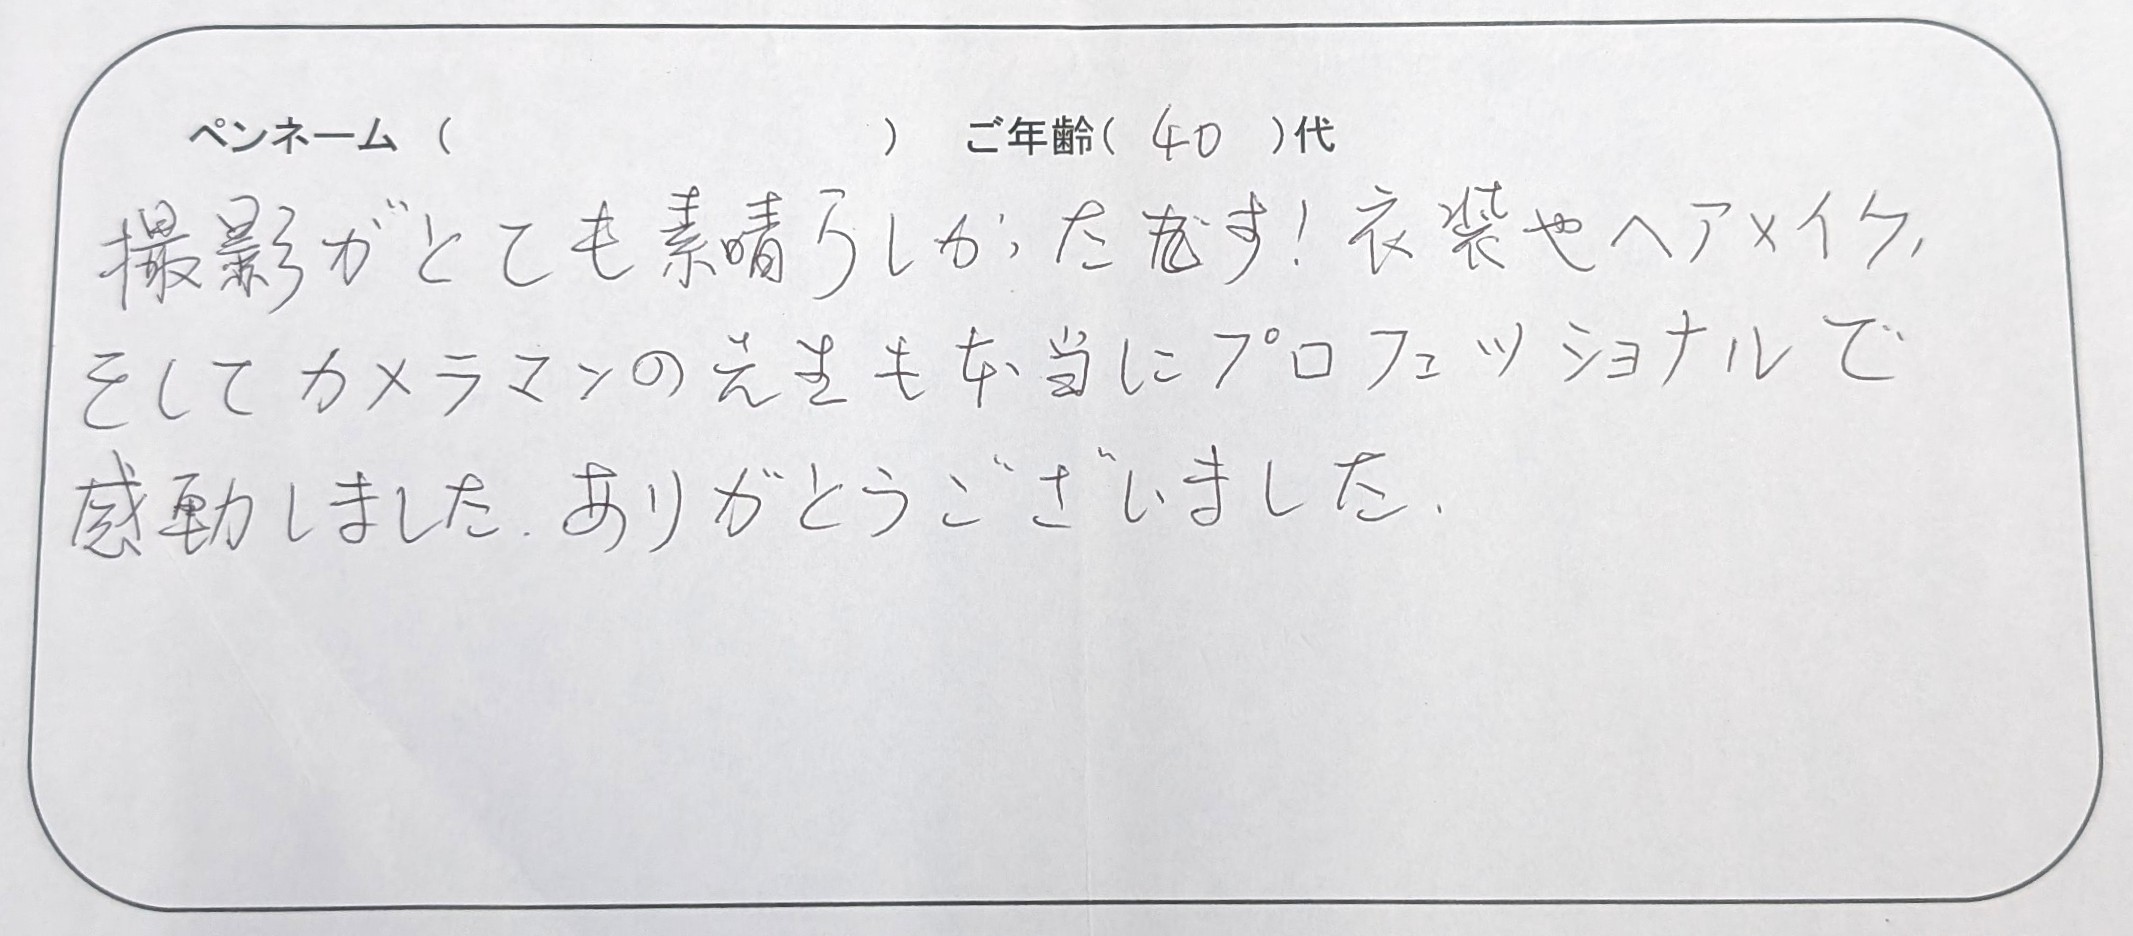 ペンネーム（　　　　　　　　　　）　ご年齢（ 40 ）代
撮影がとても素晴らしかったです！衣装やヘアメイク、
そしてカメラマンの先生も本当にプロフェッショナルで
感動しました。ありがとうございました。